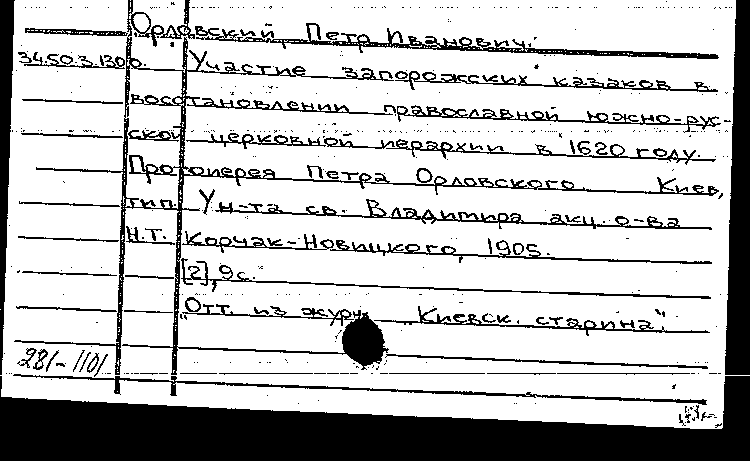 Орловский, Петр Иванович.
34.50.3.1300. Участие запорожских казаков в
восстановлении православной южно-рус-
ской церковной иерархии в 1620 году.
Протоиерея Петра Орловского Киев,
тип. Ун-та св. Владимира акц. о-ва
Н.Т. Корчак-Новицкого, 1905.
[2], 9 с.
„Отт. из журн. „Киевск. старина".
281-1101